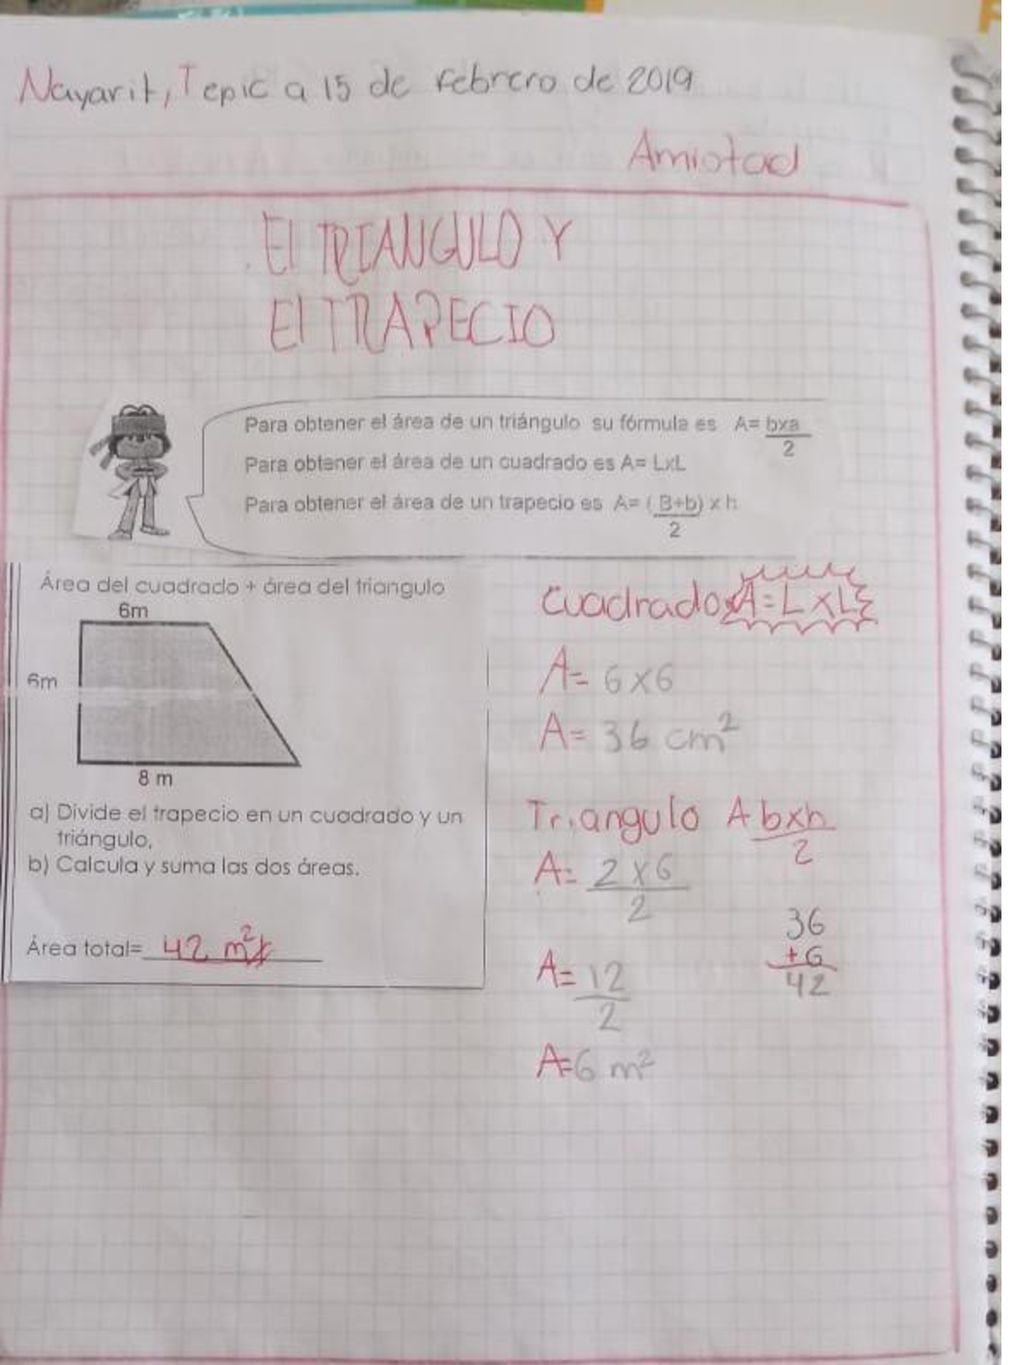 Nayarit, Tepic a 15 de febrero de 2019
Amistad
El TRIANGULO Y
El TRAPECIO
Para obtener el área de un triángulo su fórmula es A= bxa
2
Para obtener el área de un cuadrado es A= LxL
Para obtener el área de un trapecio es A= (B+b) x h
2
Área del cuadrado + área del triangulo
6m
6m
8 m
a) Divide el trapecio en un cuadrado y un
triángulo,
b) Calcula y suma las dos áreas.
Área total= 42 m²
Cuadrado A=LxL
A= 6x6
A= 36 cm²
Triangulo A bxh
2
A= 2x6
2
36
+6
42
A= 12
2
A=6 m²